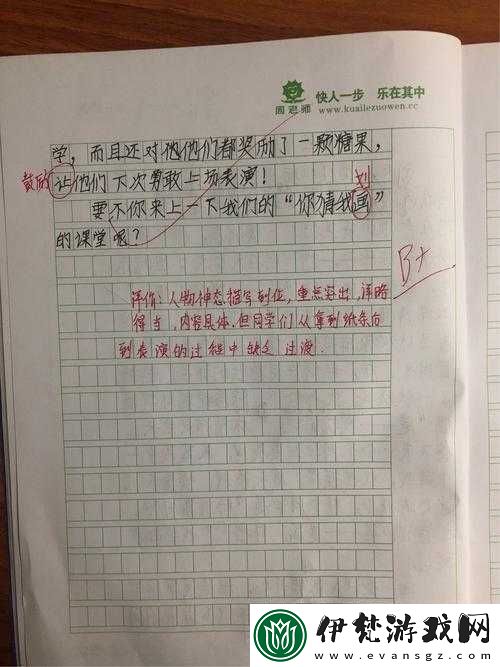 周老师 快人一步 乐在其中
www.kuailezuowen.cc
学，而且还对他他们都奖励了一颗糖果，
鼓励 让他们下次勇敢上场表演！
划
要不你来上一下我们的“你猜我画”
的课堂呢？
B+
评价：人物神态描写到位，重点突出，详略
得当，内容具体.但同学们从拿到纸条后
到表演的过程中缺乏过渡.
伊梵游戏网
www.evansgz.com